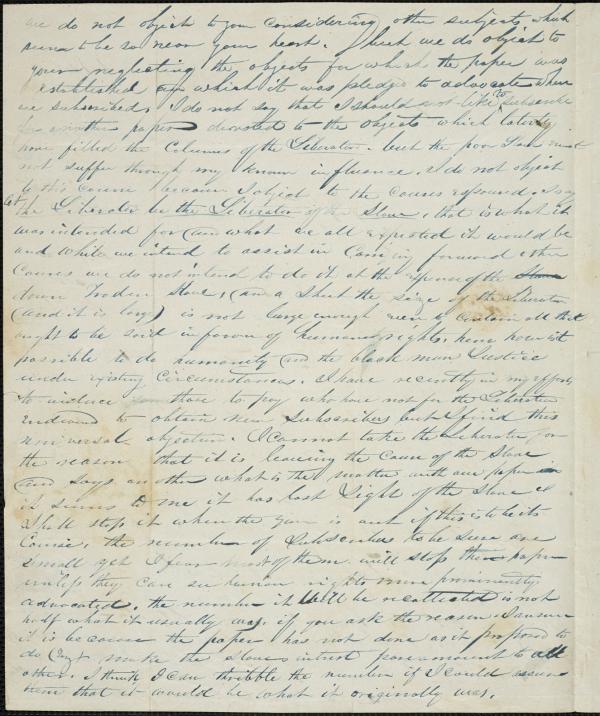 we do not object to your considering other subjects which
seem to be so near your heart. but we do object to
your neglecting the objects for which the paper was
established and which it was pledged to advocate when
we subscribed, I do not say that I should not like to subscribe
for another paper devoted to the objects which lately
have filled the Columns of the Liberator. but the poor Slave must
not suffer through my known influence. I do not object
to this course because I object to the causes espoused. I say
let the Liberator be the Liberator of the Slave, that is what it
was intended for and what we all expected it would be
and while we intend to assist in Carrying forward other
Causes we do not intend to do it at the expense of the
down Troden Slave, and a Sheet the size of the Liberator
(and it is large) is not large enough even to contain all that
ought to be said in favour of human rights, how is it
possible to do humanity and the black man Justice
under existing Circumstances. I have recently in my efforts
to induce those to pay who have not for the Liberator
endeavd to obtain new Subscribers but I find this
universal objection. I Cannot take the Liberator for
the reason that it is leaving the Cause of the Slave
and says another what is the matter with our paper
it seems to me it has lost Sight of the Slave &
I shall stop it when the year is out if this is to be its
Course, the number of Subscribers to be sure are
small yet I fear most of them will stop their paper
unless they can see human rights more prominently
advocated. the number it Will be recollected is not
half what it usually was. if you ask the reason I answer
it is because the paper has not done as it proposed to
do make the Slaves intrest paramount to all
other. I think I can thribble the number if I could assure
them that it would be what it originally was.